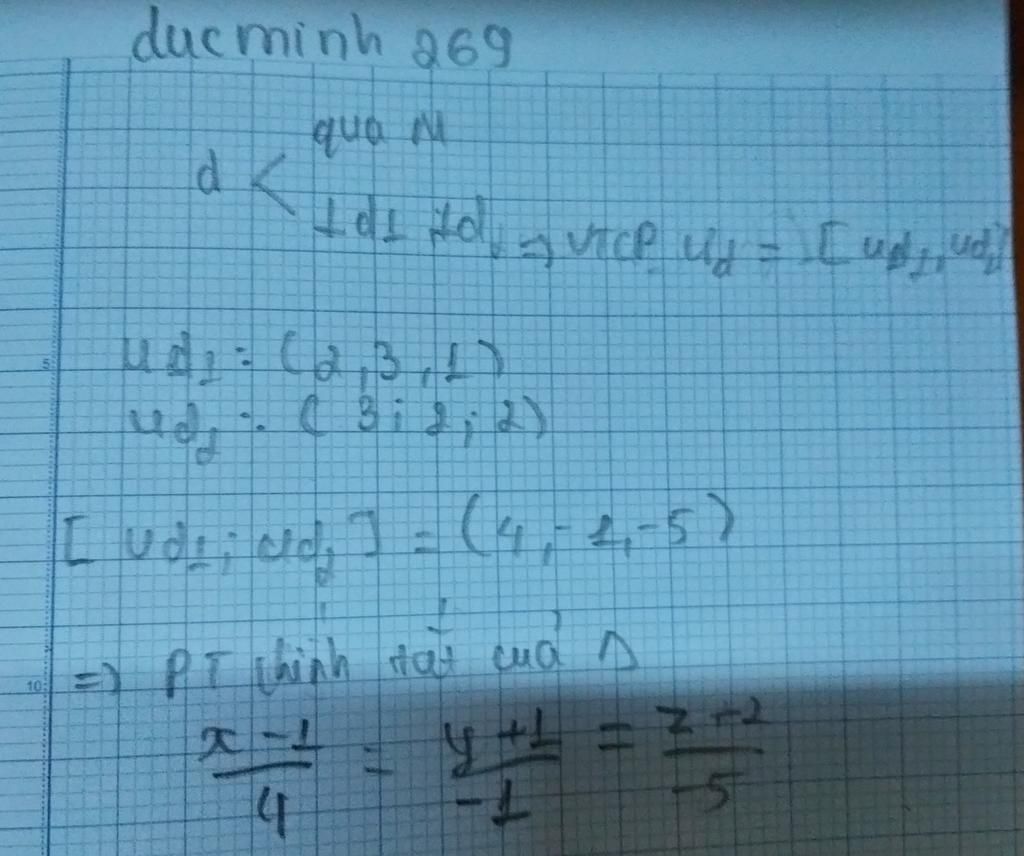 ducminh 269
qua M
d <
⊥d1, ⊥d2 => VTCP ud = [ud1, ud2]
ud1 = (2, 3, 1)
ud2 = (3; 2; 2)
[ud1; ud2] = (4, -1, -5)
=> PT chính tắt của Δ
x-1/4 = y+1/-1 = z+2/-5
5
10